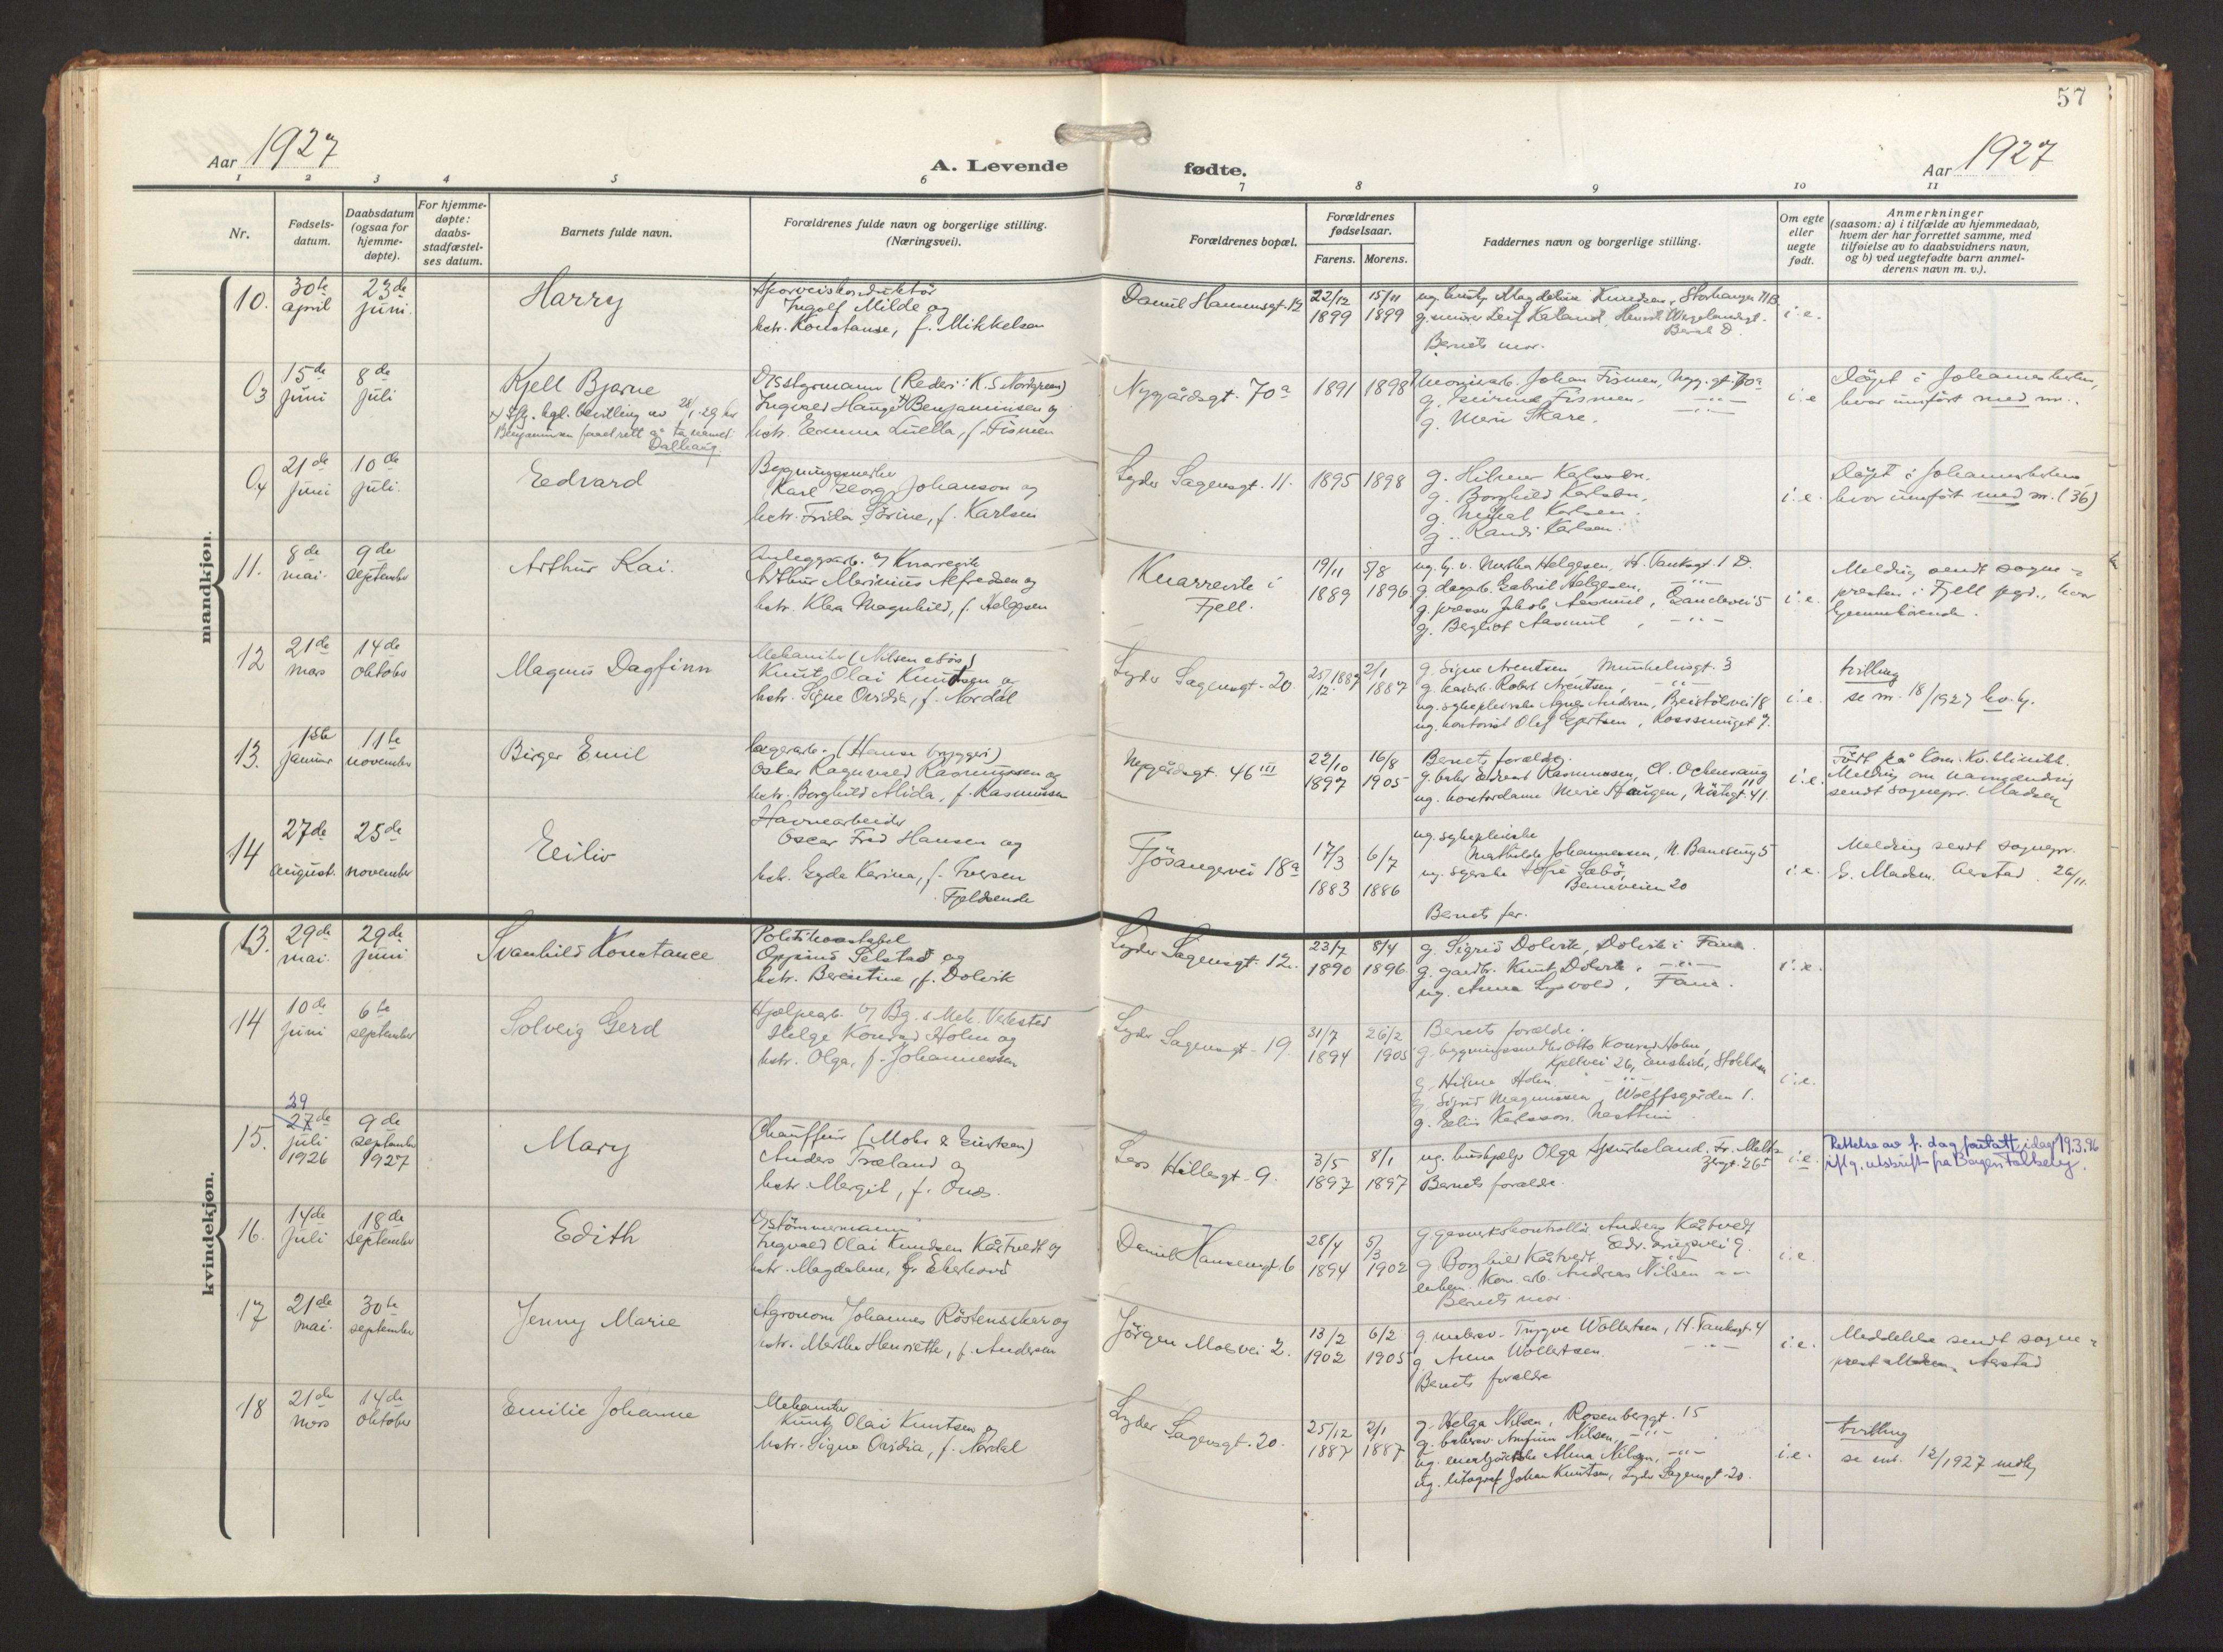 57
Aar 1927
A. Levende fødte.
Aar 1927
1 2 3 4 5 6 7 8 9 10 11
Nr.
Fødsels-
datum.
Daabsdatum
(ogsaa for
hjemme-
døpte).
For hjemme-
døpte:
daabs-
stadfæstel-
ses datum.
Barnets fulde navn.
Forældrenes fulde navn og borgerlige stilling.
(Næringsvei).
Forældrenes bopæl.
Forældrenes
fødselsaar.
Farens. Morens.
Faddernes navn og borgerlige stilling.
Om egte
eller
uegte
født.
Anmerkninger
(saasom: a) i tilfælde av hjemmedaab,
hvem der har forrettet samme, med
tilføielse av to daabsvidners navn,
og b) ved uegtefødte barn anmel-
derens navn m. v.).
mandkjøn.
10. 30te april 23de juni. Harry
Sporveiskonduktör
Ingolf Milde og
hstr. Konstanse, f. Mikkelsen
Daniel Hansensgt. 12
22/12 1899 15/11 1899
Magdeline Knudsen,
g. murer Leif Kaland, Henrik Wergelandsgt.
Barnets mor.
i.e.
03 15de juni 8de juli Kjell Bjarne
Benjaminsen
Dalhaug
Ds styrmann (Rederi: K. S. Nordgreen)
Ingvald Hauge Benjaminsen og
hstr. Emma Luella, f. Fismen
Nygårdsgt. 70a
1891 1898
Johan Fismen, Nyg. gt. 70a
g. Fismen. -"-
g. Skare.
i.e
Döpt i Johanneskirken,
hvor innfört med nr.
04 21de juni 10de juli. Edvard
Bygningssnekker
Karl Georg Johanson og
hstr. Frida Sörine, f. Karlsen
Lyder Sagensgt. 11.
1895 1898
g. Hilmer Karlsen.
g. Borghild Karlsen.
g. Karlsen.
g. Randi Karlsen.
i.e.
Döpt i Johanneskirken
hvor innfört med nr. (36)
11. 8de mai. 9de september Arthur Kai.
Anleggsarb. v/ Knarrevik
Arthur Marinius Alfredsen og
hstr. Klara Magnhild, f. Helgesen
Knarrevik i
Fjell.
19/11 1889 5/8 1896
ug. Martha Helgesen, H. Tanksgt. 1 D.
g. Gabriel Helgesen, -"-
g. presser Jakob Aasmul, 5
g. Bergliot Aasmul, -"-
i.e.
Melding sendt sogne-
presten i Fjell pgd., hvor
hjemmehörende.
12 21de mars 14de oktober Magnus Dagfinn
Mekaniker (Nilsen)
Knut Olai Knutsen og
hstr. Signe Ovidia, f. Nordal
Lyder Sagensgt. 20.
25/12 1887 2/1 1887
g. Signe Arentsen,
g. Robert Arentsen, -"-
ug. sykepleierske Agnes Andersen, 18
ug. kontorist Olaf Gjertsen, 7.
i.e.
tvilling
se nr. 18/1927 kv.kj.
13. 1ste januar 11te november Birger Emil
lagerarb. (Hansa bryggeri)
Oskar Ragnvald Rasmussen og
hstr. Borghild Alida, f. Rasmussen
Nygårdsgt. 46 III
22/10 1897 16/8 1905
Barnets forældre.
g. Rasmussen,
ug. kontordame Marie Haugen, Nöstegt. 41.
i.e.
Födt på Kom. Kv. klinikk.
Melding om navngivning
sendt sognepr. Madsen
14 27de august. 25de november Eiliv
Havnearbeider
Oscar Fred Hansen og
hstr. Gyda Karina, f. Iversen
Fjeldsende
Fjösangervei 18a
17/3 1883 6/7 1886
ug. sykepleierske
Mathilde Johannessen,
ug. syerske Sofie Sæbö,
20
Barnets far.
i.e.
Melding sendt sognepr.
S. Madsen, Aarstad. 26/11.
kvindekjøn.
13. 29de mai. 29de juni Svanhild Konstance
Politikonstabel
Oppind Selstad og
hstr. Berentine, f. Dolvik
Lyder Sagensgt. 12.
23/7 1890 8/4 1896
g. Sigrid Dolvik, Dolvik i Fana.
g. gardbr. Knut Dolvik, -"-
ug. Anna Lysvold, Fana.
i.e.
14 10de juni 6te september Solveig Gerd
Hjelpearb. v/ Bg.s Mek. Verksted
Helge Konrad Holm og
hstr. Olga, f. Johannessen
Lyder Sagensgt. 19.
31/7 1894 26/2 1905
Barnets forældre.
g. bygningssnedker Otto Konrad Holm,
Enskede, Stockholm
g. Hilma Holm. -"-
g. Sigrid Magnussen, Wolffsgården 1.
g. Elin Karlsson, Nesttun
i.e.
15. 29 27de juli 1926 9de september 1927 Mary
Chauffeur (Mohr & Giertsen)
Anders Træland og
hstr. Margit, f. Onæs.
Lars Hillesgt. 9.
3/5 1897 8/1 1897
ug. hushjelp Olga Spurkeland. Fr. Meltz-
ersgt. 26
Barnets forældre.
i.e.
Rettelse av f. dag foretatt idag 19.3.96
iflg. utskrift fra Bergen Folkereg.
16. 14de juli 18de september Edith
Ds tömmermann
Ingvald Olai Knudsen Kåstvedt og
hstr. Magdalena, f. Ekerhovd
Daniel Hansensgt. 6
28/4 1894 5/3 1902
g. gasverkskontrollör Andreas Kåstvedt
Edv. Griegsvei 9.
g. Borghild Kåstvedt. -"-
enkem. kom. arb. Andreas Nilsen -"-
Barnets mor.
i.e.
17 21de mai. 30te september Jenny Marie
Agronom Johannes Röstensskar og
hstr. Martha Henriette, f. Andersen
Jörgen Moesvei 2.
13/2 1902 6/2 1905
g. Trygve Wollertsen, H. Tanksgt. 4
g. Anna Wollertsen. -"-
Barnets forældre
i.e.
Meddelelse sendt sogne-
prest Madsen, Aarstad
18 21de mars 14de oktober Emilie Johanne
Mekaniker
Knut Olai Knutsen og
hstr. Signe Ovidia, f. Nordal
Lyder Sagensgt. 20.
25/12 1887 2/1 1887
g. Helga Nilsen, Rosenberggt. 15
g. Arnfinn Nilsen, -"-
ug. Alma Nilsen, -"-
ug. litograf Johan Knutsen, Lyder Sagensgt. 20.
i.e.
tvilling
se nr. 12/1927 m.kj